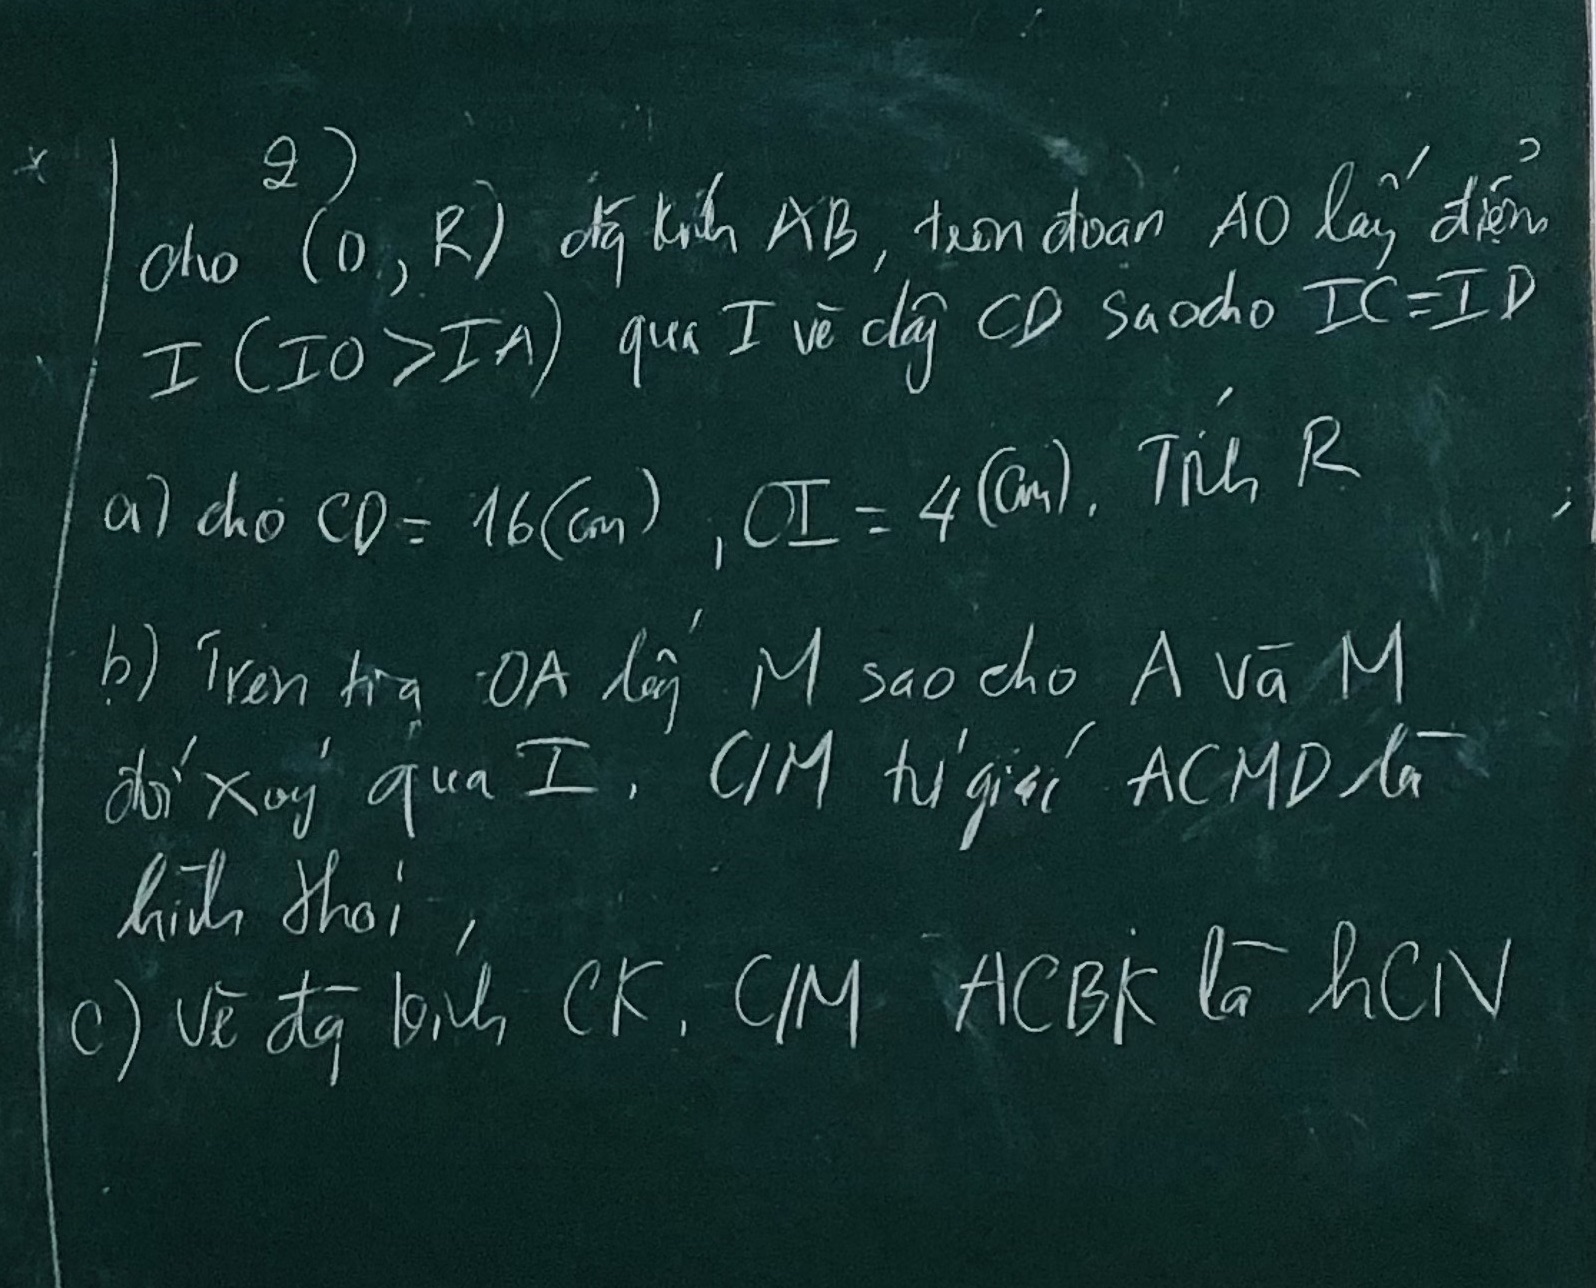 2)
cho (O, R) đg kính AB, trên đoạn AO lấy điểm
I (IO > IA) qua I vẽ dây CD sao cho IC = ID
a) cho CD = 16(cm), OI = 4(cm). Tính R
b) Trên tia OA lấy M sao cho A và M
đối xứng qua I. C/M tứ giác ACMD là
hình thoi,
c) Vẽ đg kính CK. C/M ACBK là hCN